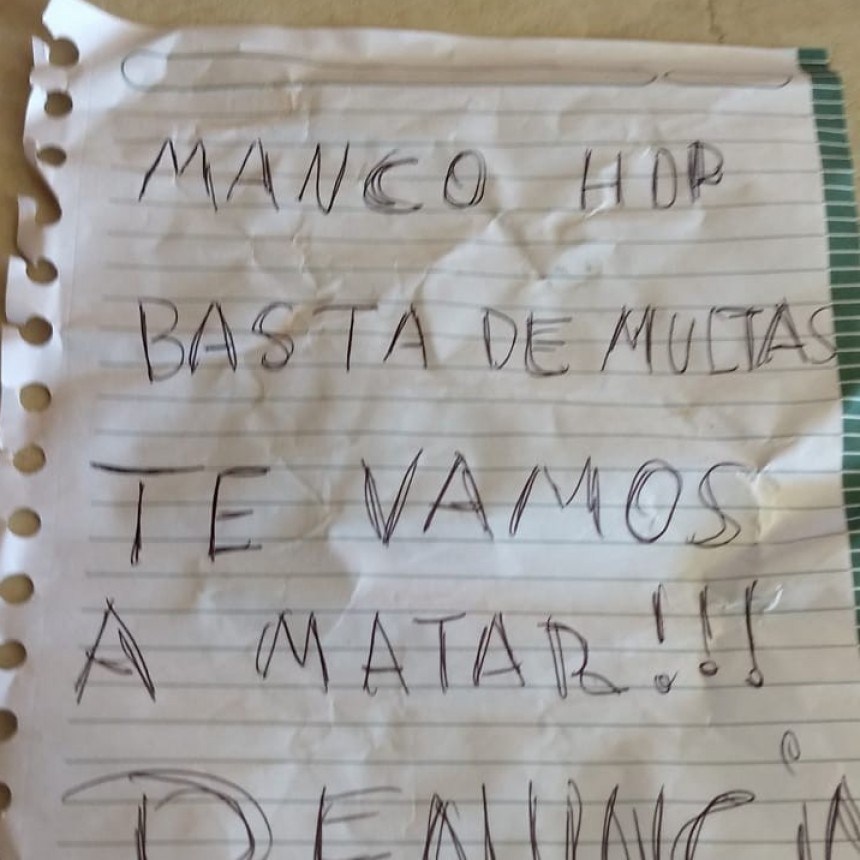 MANCO HDP
BASTA DE MULTAS
TE VAMOS
A MATAR!!!